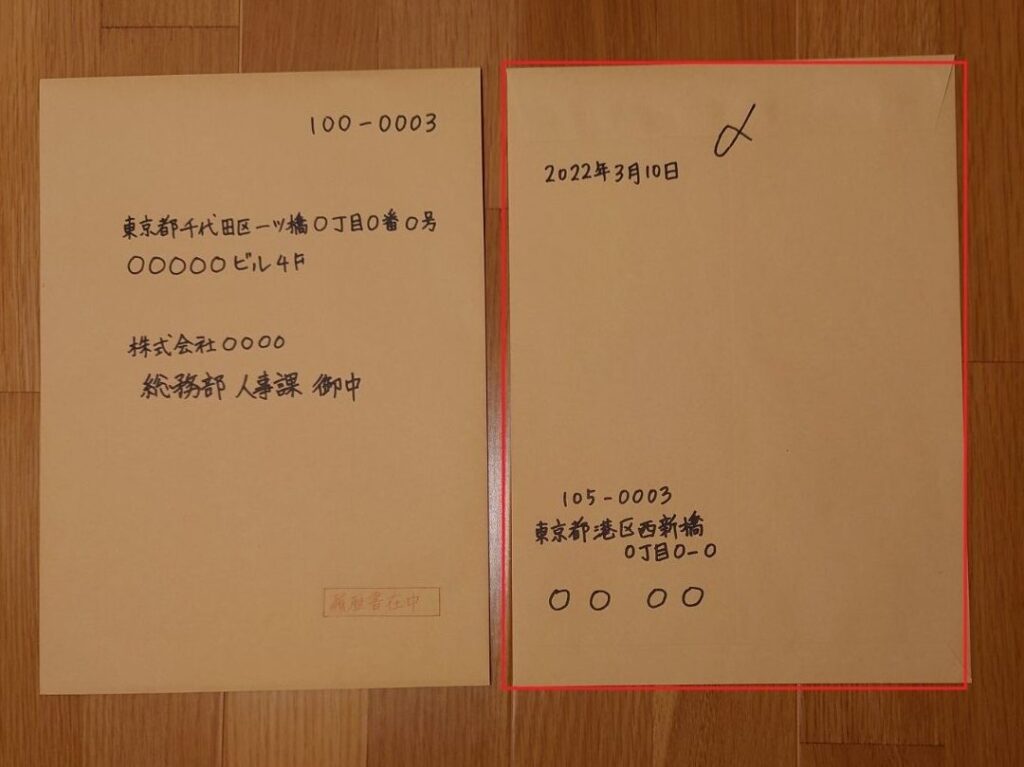 100-0003
東京都千代田区一ツ橋〇丁目〇番〇号
〇〇〇〇〇ビル4F
株式会社〇〇〇〇
総務部 人事課 御中
履歴書在中
〆
2022年3月10日
105-0003
東京都港区西新橋
〇丁目〇-〇
〇〇 〇〇